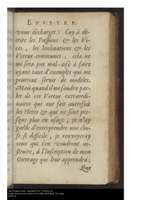 EPISTRE.
vous décharger? Car à dé-
crire les Passions & les Vi-
ces, les Inclinations & les
Vertus communes; cela ne
me sera pas mal-aisé à faire
ayant tant d'exemples qui me
pourront servir de modeles.
Mais quand il me faudra par-
ler de ces Vertus extraordi-
naires qui ont fait autrefois
les Heros & qui ne sont pres-
que plus en usage; je m'ay
garde d'entreprendre une cho-
se si difficile, je renvoyeray
ceux qui s'en voudront in-
struire, à l'Inscription de mon
Ouvrage qui leur apprendra,